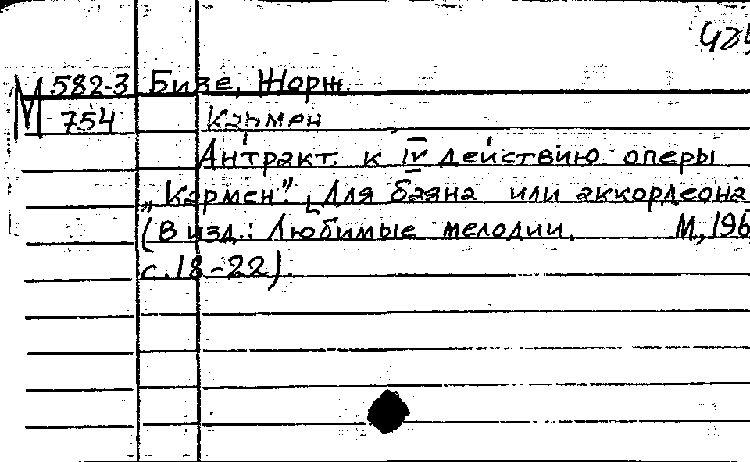 М 582-3 Бизе, Жорж
754 Кармен
Антракт к IV действию оперы
„Кармен". [Для баяна или аккордеона
(В изд.: Любимые мелодии. М., 196
с. 18-22).